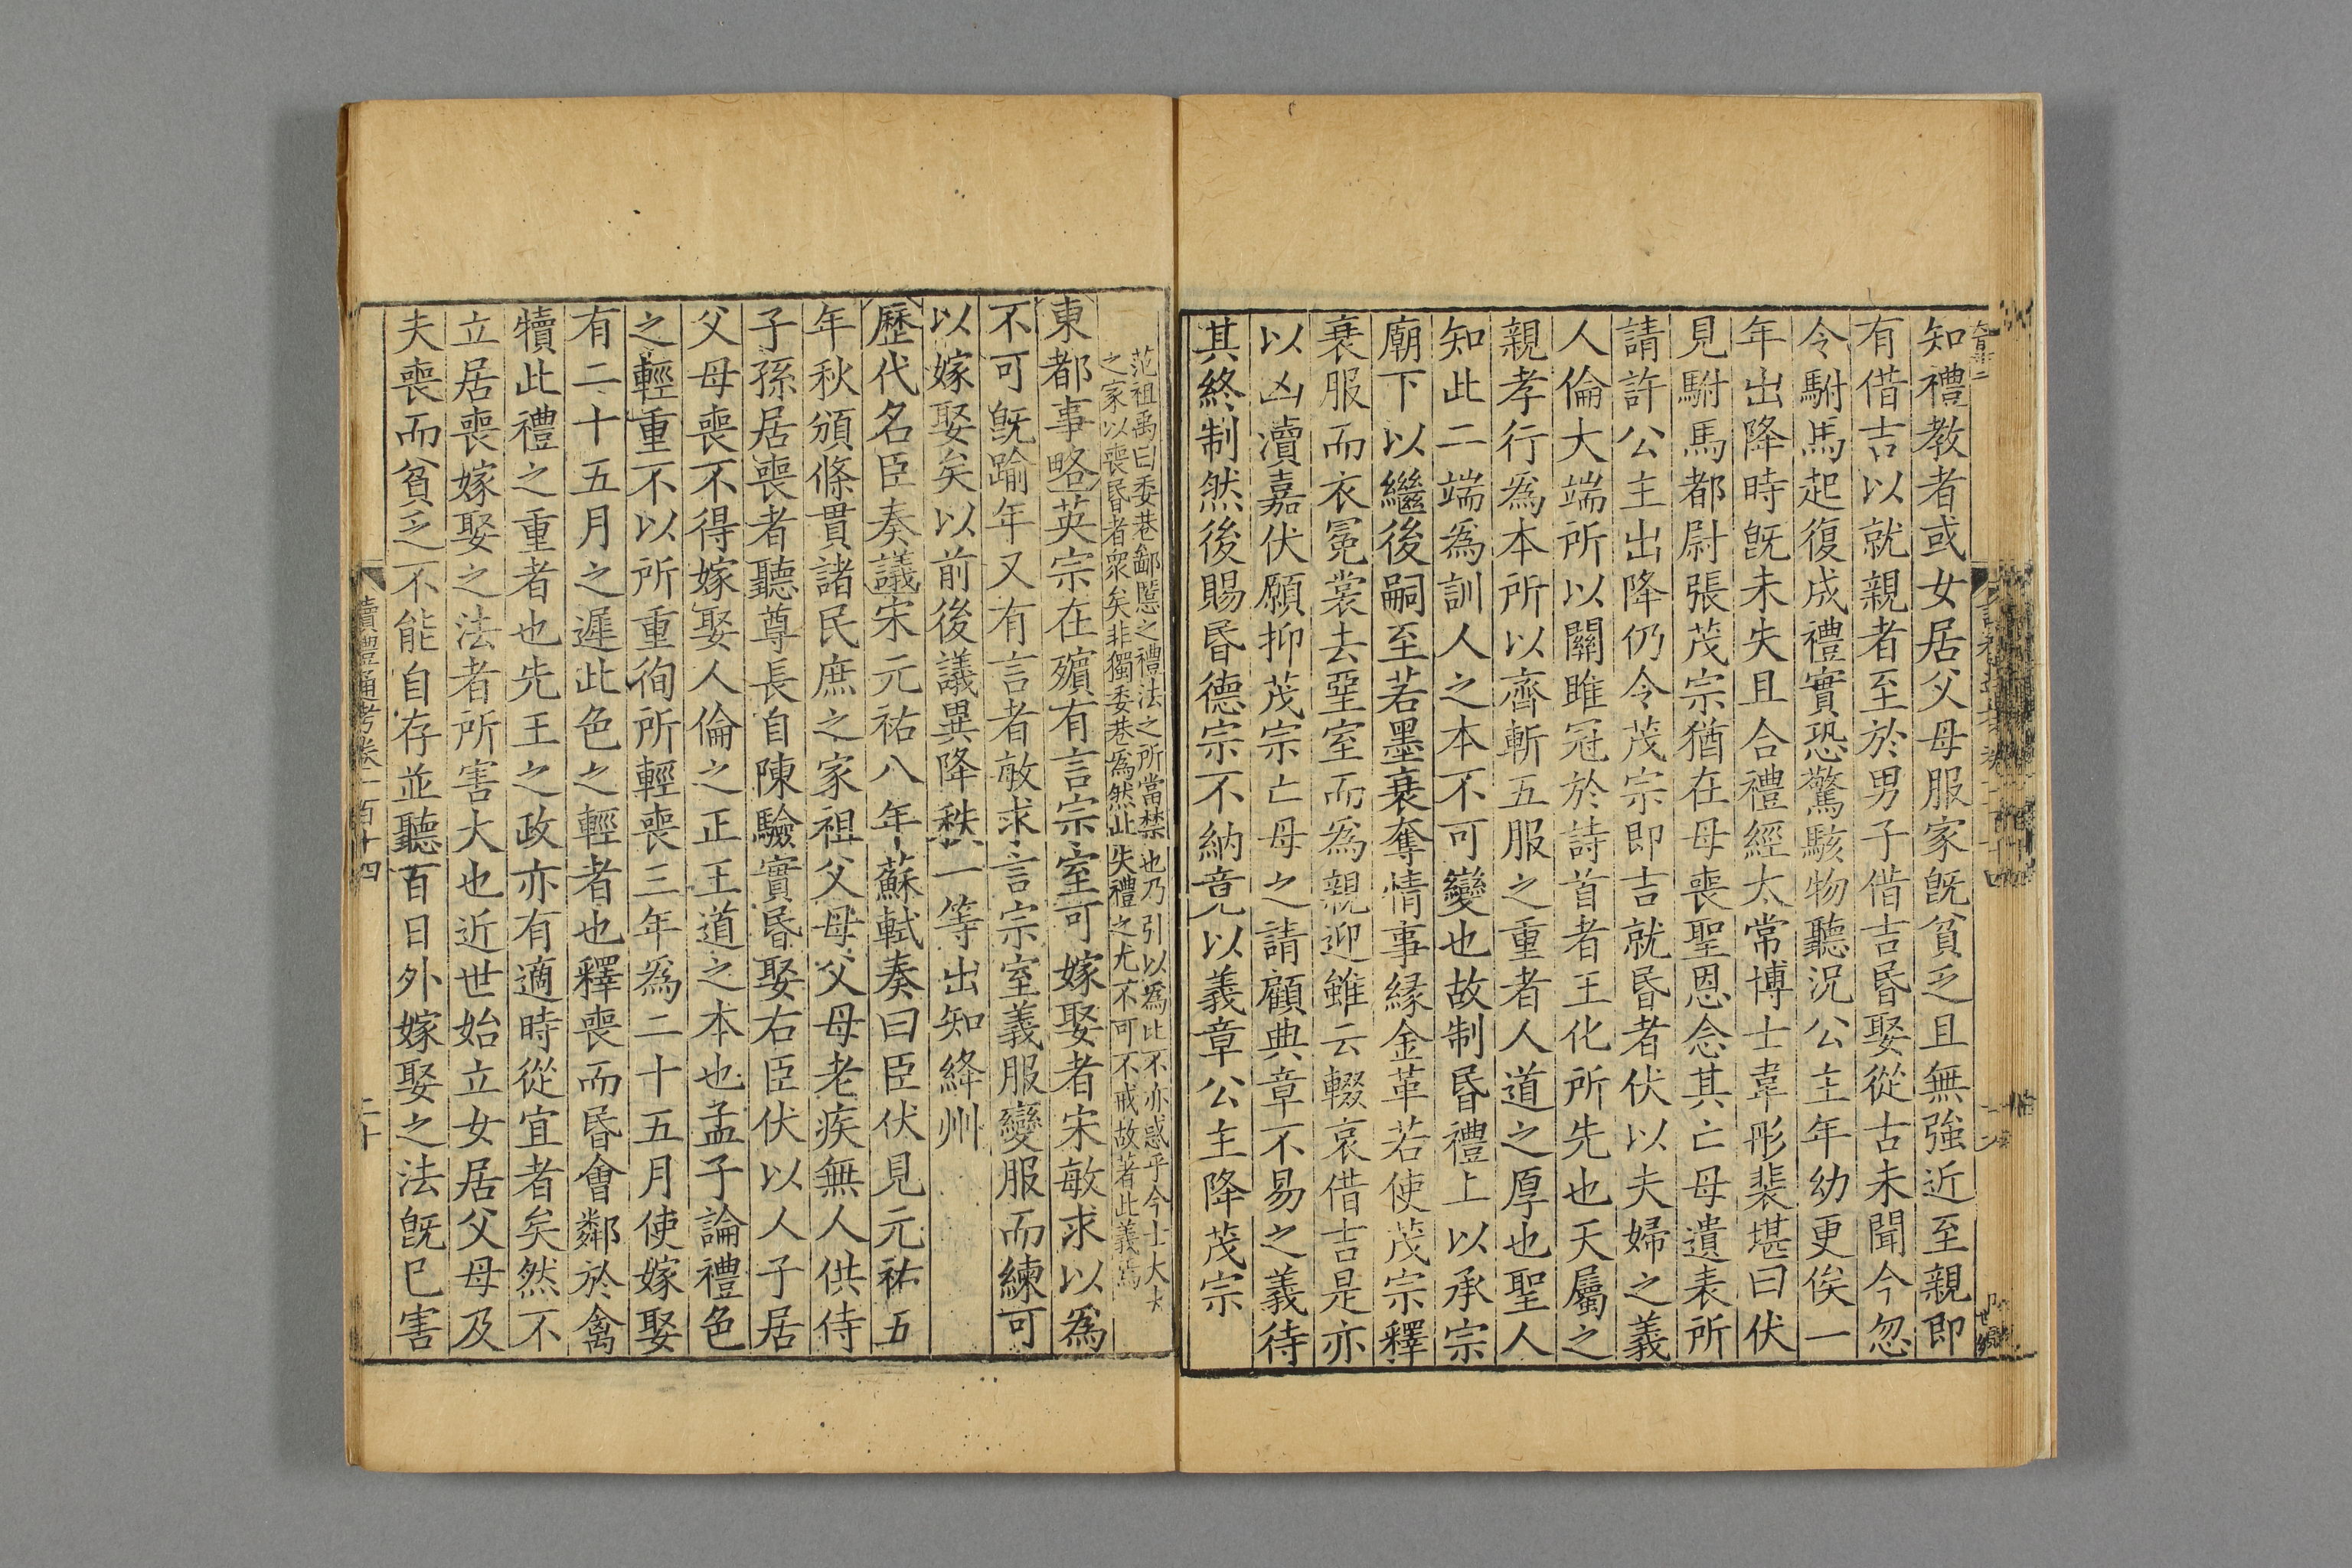 知禮教者或女居父母服家旣貧乏且無強近至親即
有借吉以就親者至於男子借吉昏娶從古未聞今忽
令駙馬起復成禮實恐驚駭物聽況公主年幼更俟一
年出降時旣未失且合禮經太常博士韋彤裴堪曰伏
見駙馬都尉張茂宗猶在母喪聖恩念其亡母遺表所
請許公主出降仍令茂宗即吉就昏者伏以夫婦之義
人倫大端所以關雎冠於詩首者王化所先也天屬之
親孝行爲本所以齊斬五服之重者人道之厚也聖人
知此二端爲訓人之本不可變也故制昏禮上以承宗
廟下以繼後嗣至若墨衰奪情事緣金革若使茂宗釋
衰服而衣冕裳去堊室而爲親迎雖云輟哀借吉是亦
以凶瀆嘉伏願抑茂宗亡母之請顧典章不易之義待
其終制然後賜昏德宗不納竟以義章公主降茂宗
范祖禹曰委巷鄙慝之禮法之所當禁也乃引以爲比不亦惑乎今士大夫
之家以喪昏者衆矣非獨委巷爲然此失禮之尤不可不戒故著此義焉
東都事略英宗在殯有言宗室可嫁娶者宋敏求以爲
不可旣踰年又有言者敏求言宗室義服變服而練可
以嫁娶矣以前後議異降秩一等出知絳州
歷代名臣奏議宋元祐八年蘇軾奏曰臣伏見元祐五
年秋頒條貫諸民庶之家祖父母父母老疾無人供侍
子孫居喪者聽尊長自陳驗實昏娶右臣伏以人子居
父母喪不得嫁娶人倫之正王道之本也孟子論禮色
之輕重不以所重徇所輕喪三年爲二十五月使嫁娶
有二十五月之遲此色之輕者也釋喪而昏會鄰於禽
犢此禮之重者也先王之政亦有適時從宜者矣然不
立居喪嫁娶之法者所害大也近世始立女居父母及
夫喪而貧乏不能自存並聽百日外嫁娶之法旣已害
讀禮通考卷一百十四
二十